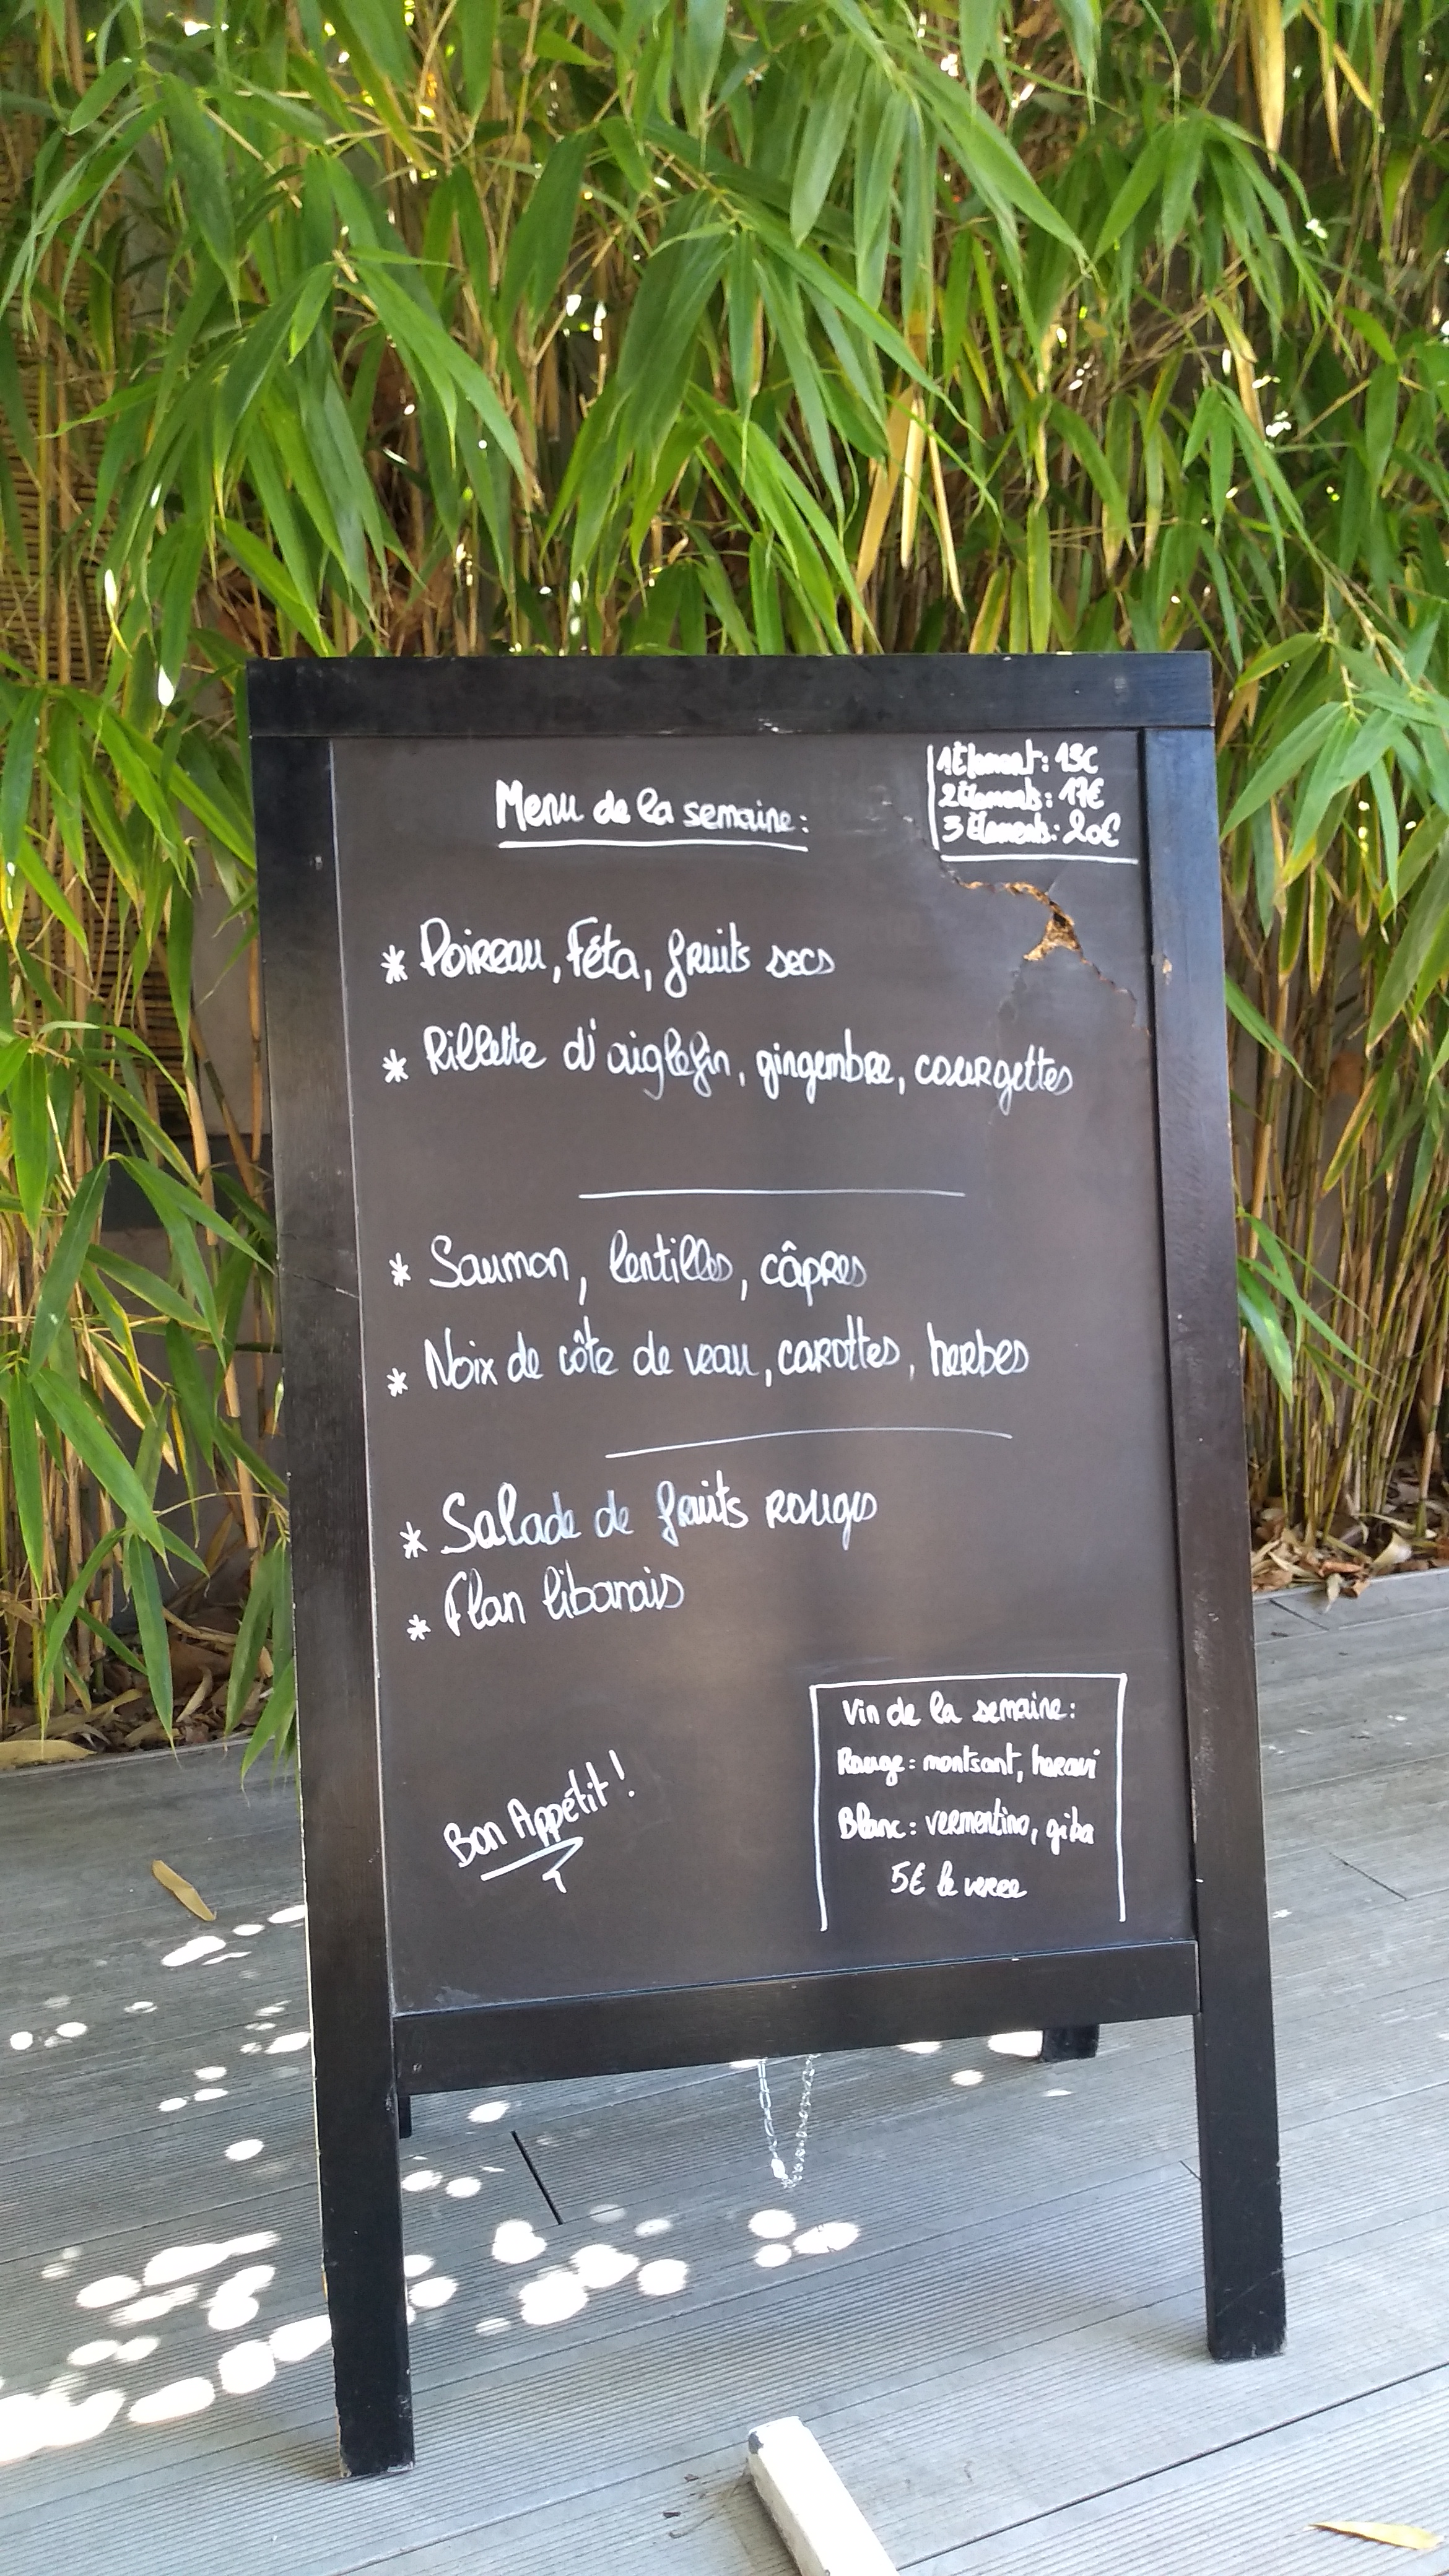 Menu de la semaine:
1 Élement: 13€
2 Élements: 17€
3 Élements: 20€
* Poireau, Féta, fruits secs
* Rillette d'aiglefin, gingembre, courgettes
* Saumon, lentilles, câpres
* Noix de côte de veau, carottes, herbes
* Salade de fruits rouges
* Flan libanais
Bon Appétit !
Vin de la semaine:
Rouge: montsant, heravi
Blanc: vermentino, giba
5€ le verre